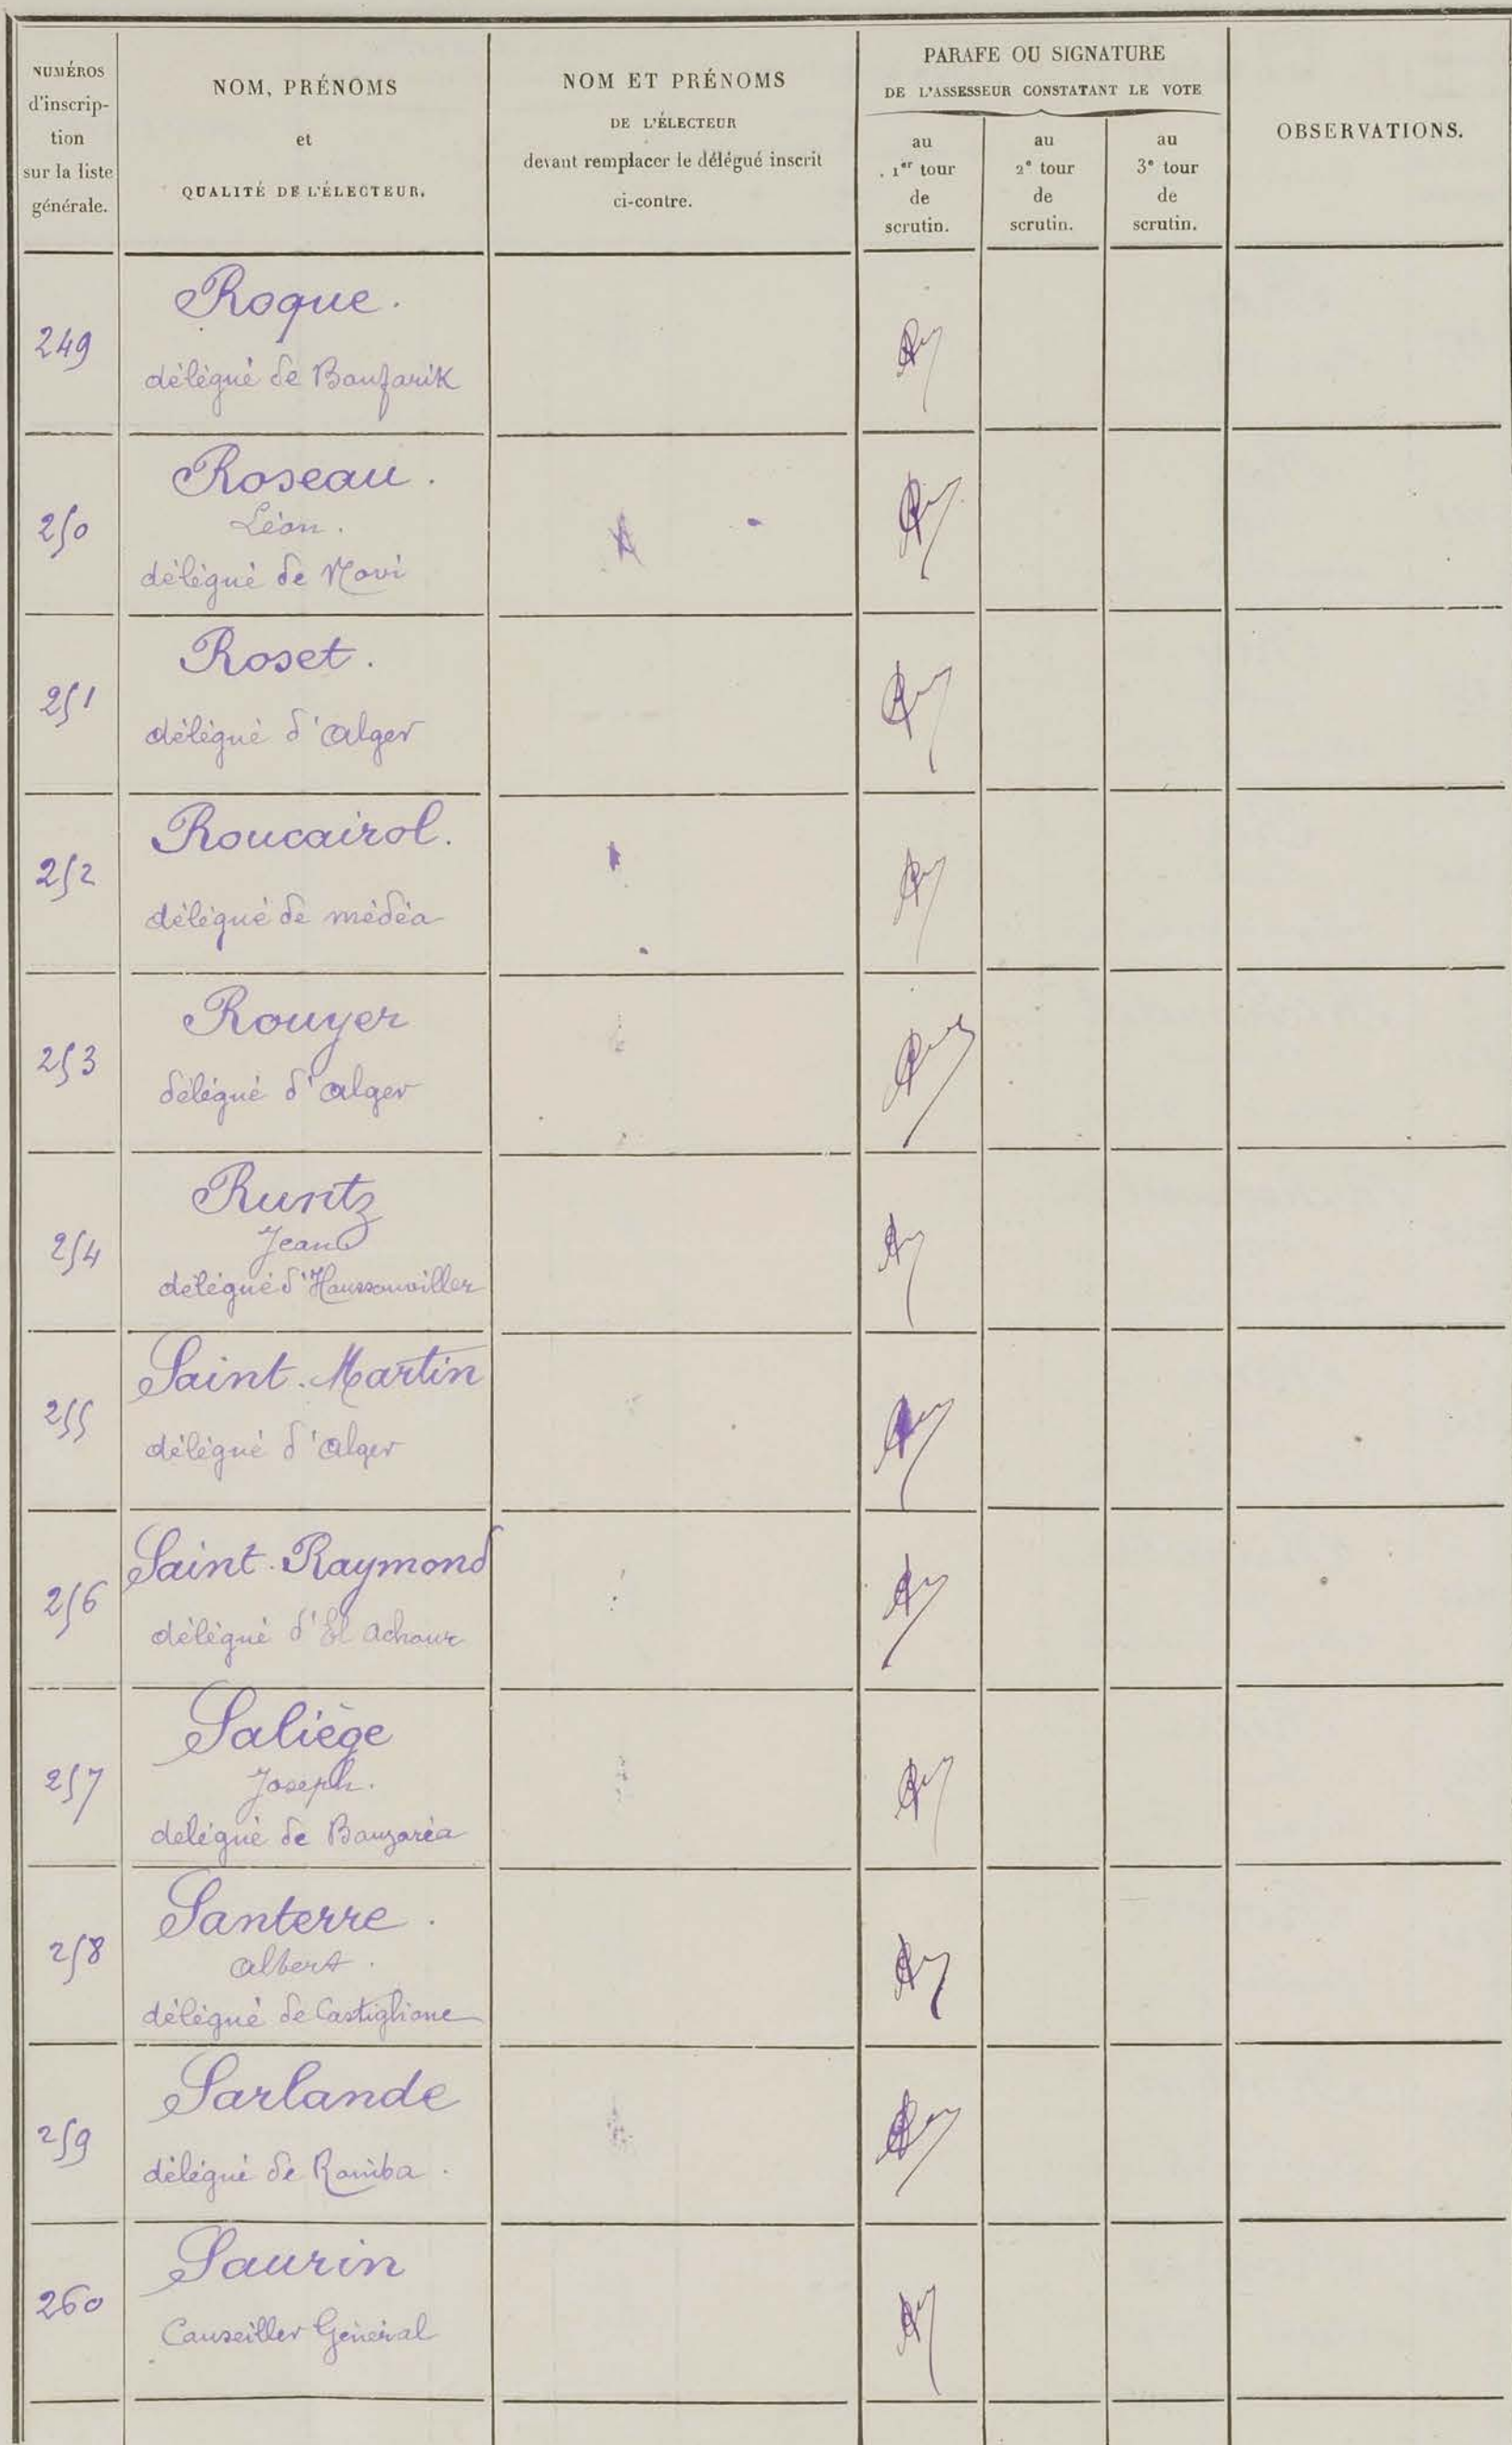 NUMÉROS
d'inscrip-
tion
sur la liste
générale.
NOM, PRÉNOMS
et
QUALITÉ DE L'ÉLECTEUR.
NOM ET PRÉNOMS
DE L'ÉLECTEUR
devant remplacer le délégué inscrit
ci-contre.
PARAFE OU SIGNATURE
DE L'ASSESSEUR CONSTATANT LE VOTE
au
1er tour
de
scrutin.
au
2e tour
de
scrutin.
au
3e tour
de
scrutin.
OBSERVATIONS.
249
Roque.
délégué de Boufarik
250
Roseau.
Léon.
délégué de Novi
251
Roset.
délégué d'Alger
252
Roucairol.
délégué de médéa
253
Rouyer
délégué d'Alger
254
Runtz
Jean
délégué d'Haussonviller
255
Saint-Martin
délégué d'Alger
256
Saint-Raymond
délégué d'El Achour
257
Saliège
Joseph.
délégué de Bouzaréa
258
Santerre.
Albert.
délégué de Castiglione
259
Sarlande
délégué de Rouiba.
260
Saurin
Conseiller Général